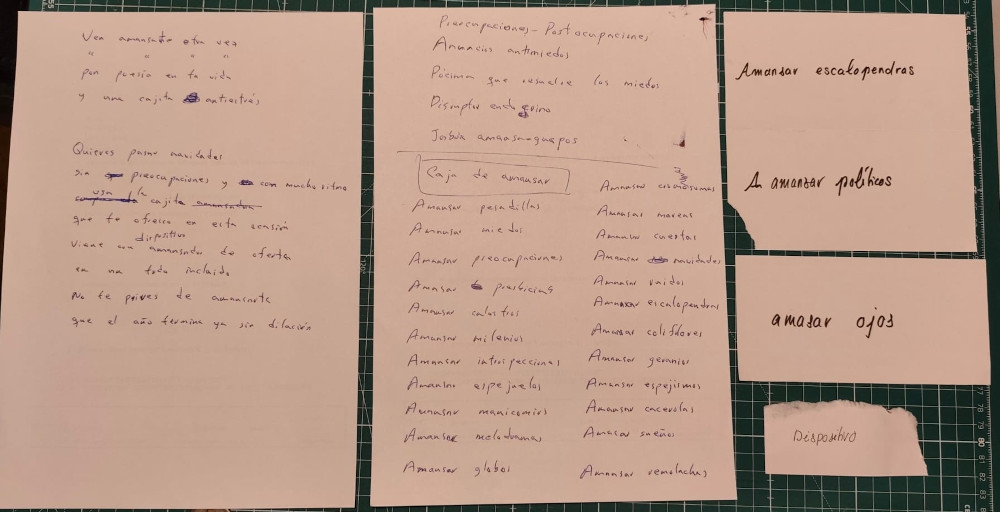 Ven amansarte otra vez
" " " "
pon poesía en tu vida
y una cajita antiestrés
Quieres pasar navidades
sin preocupaciones y con mucho ritmo
usa la cajita
que te ofrezco en esta ocasión
viene un dispositivo amansador de oferta
en un todo incluido
No te prives de amansarte
que el año termina ya sin dilación
Preocupaciones - Postocupaciones
Anuncios antimiedos
Pócima que resuelve los miedos
Disruptor endogrino
amansa-guapos
Caja de amansar
Amansar pesadillas
Amansar miedos
Amansar preocupaciones
Amansar presbicias
Amansar calostros
Amansar milenios
Amansar introspecciones
Amansar espejuelos
Amansar manicomios
Amansar melodramas
Amansar globos
Amansar cromosomas
Amansar mareas
Amansar cuestas
Amansar navidades
Amansar ruidos
Amansar escalopendras
Amansar coliflores
Amansar geranios
Amansar espejismos
Amansar cacerolas
Amasar sueños
Amansar remolachas
Amansar escalopendras
A amanzar políticos
amasar ojos
Dispositivo